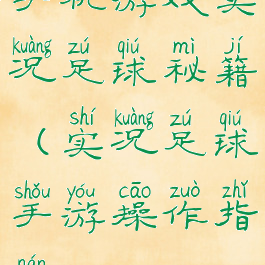 手机游戏实
kuàng zú qiú mì jí
况足球秘籍
shí kuàng zú qiú
（实况足球
shǒu yóu cāo zuò zhǐ
手游操作指
nán